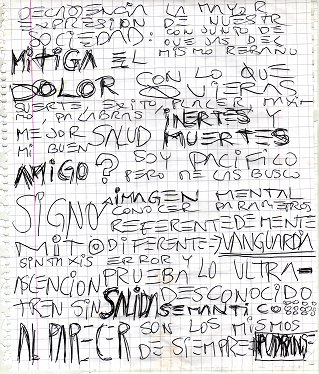 DECADENCIA LA MAYOR
EXPRESION DE NUESTR
SOCIEDAD: CONJUNTO DE
QUE VAS EL
MITIGA EL MISMO REBAÑO
DOLOR CON LO QUE
QUIERAS
SUERTE, EXITO, PLACER, MAXI
MO, PALABRAS INERTES Y
MEJOR SALUD MUERTES
MI BUEN
AMIGO? SOY PACIFICO
PERO ME LAS BUSCO
SIGNO A IMAGEN MENTAL
CONOCER PARAMETROS
REFERENTE DE MENTE
MIT@ DIFERENTE → VANGUARDIA
SINTAXIS ERROR Y
ASCENCION PRUEBA LO ULTRA-
TREN SIN SALIDA DESCONOCIDO
SEMANTICO
AL PARECER SON LOS MISMOS
DE SIEMPRE